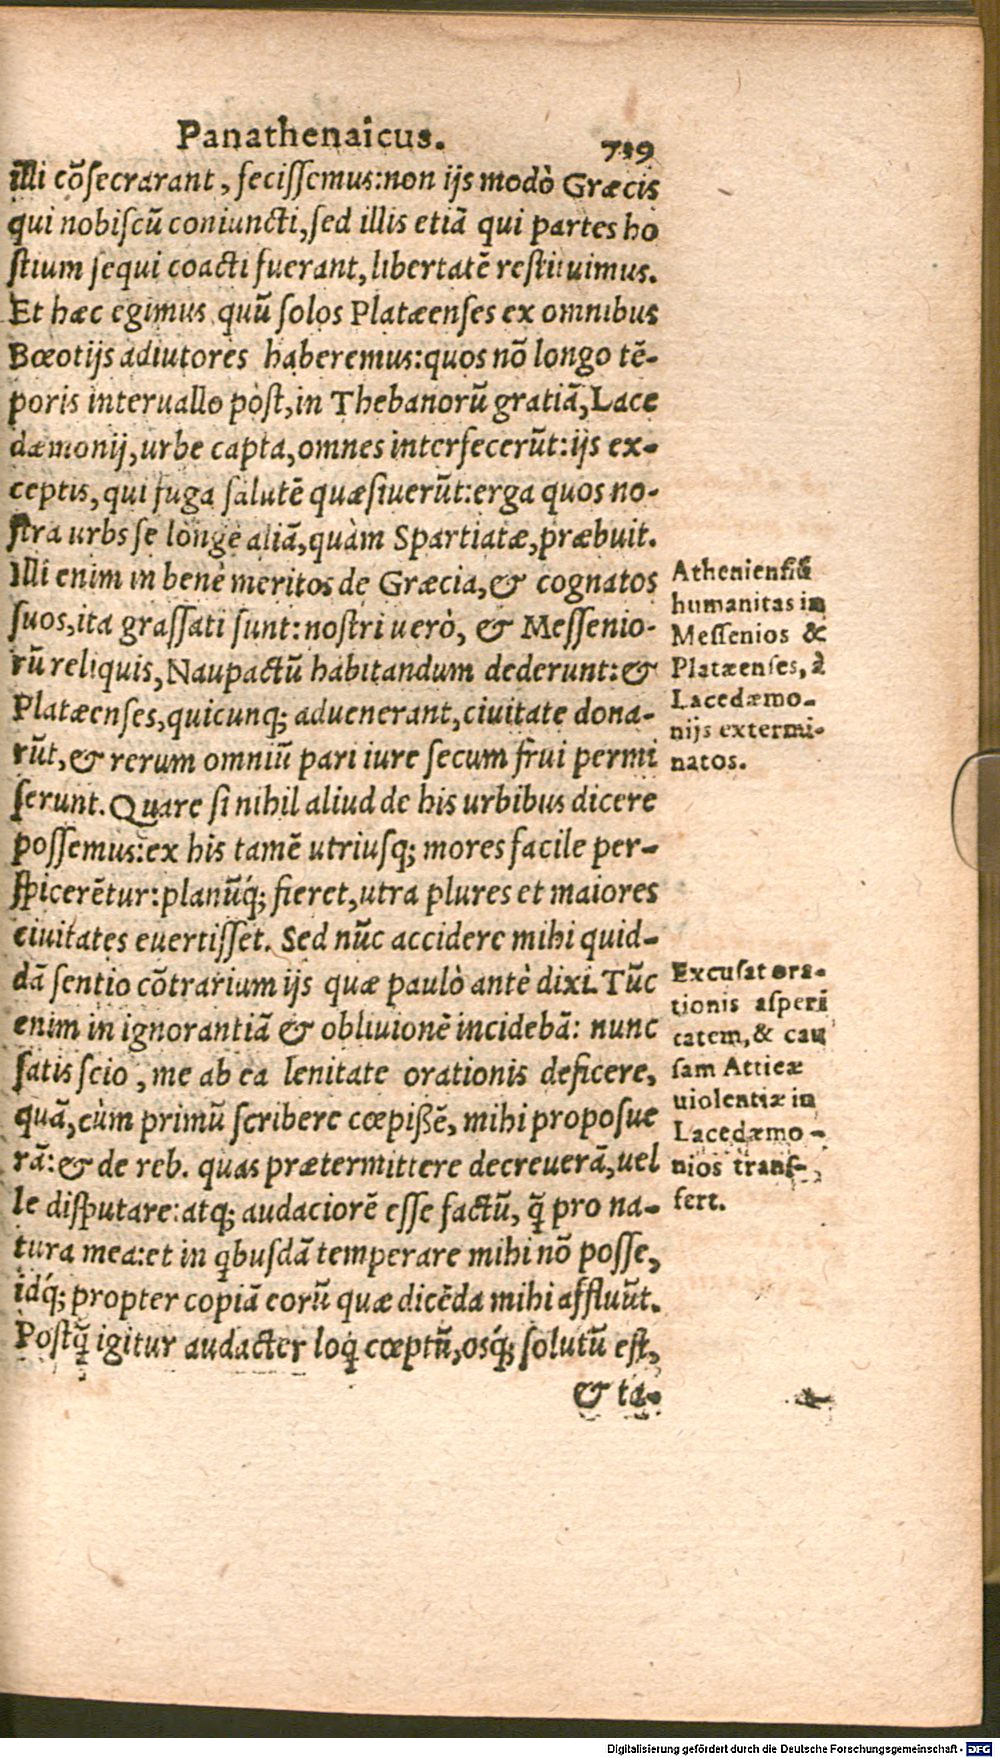 Panathenaicus. 719
illi cõsecrarant, fecissemus: non ijs modò Græcis
qui nobiscũ coniuncti, sed illis etiã qui partes ho
stium sequi coacti fuerant, libertatẽ restituimus.
Et hæc egimus quũ solos Platæenses ex omnibus
Bœotijs adiutores haberemus: quos nõ longo tẽ-
poris interuallo pòst, in Thebanorũ gratiã, Lace
dæmonij, urbe capta, omnes interfecerũt: ijs ex-
ceptis, qui fuga salutẽ quæsiuerũt: erga quos no-
stra urbs se longè aliã, quàm Spartiatæ, præbuit.
Illi enim in benè meritos de Græcia, & cognatos
suos, ita grassati sunt: nostri uerò, & Messenio-
rũ reliquis, Naupactũ habitandum dederunt: &
Platæenses, quicunq; aduenerant, ciuitate dona-
rũt, & rerum omniũ pari iure secum frui permi
serunt. Quare si nihil aliud de his urbibus dicere
possemus: ex his tamẽ utriusq; mores facile per-
spicerẽtur: planũq́; fieret, utra plures et maiores
ciuitates euertisset. Sed nũc accidere mihi quid-
dã sentio cõtrarium ijs quæ paulò antè dixi. Tũc
enim in ignorantiã & obliuionẽ incidebã: nunc
satis scio, me ab ea lenitate orationis deficere,
quã, cùm primũ scribere cœpißẽ, mihi proposue
rã: & de reb. quas prætermittere decreuerã, uel
le disputare: atq; audaciorẽ esse factũ, q̃ pro na-
tura mea: et in qbusdã temperare mihi nõ posse,
idq́; propter copiã eorũ quæ dicẽda mihi affluũt.
Postq̃ igitur audacter loq̃ cœptũ, osq́; solutũ est,
& ta-
Atheniensiũ
humanitas in
Messenios &
Platæenses, à
Lacedæmo-
nijs extermi-
natos.
Excusat ora-
tionis asperi
tatem, & cau
sam Atticæ
uiolentiæ in
Lacedæmo-
nios trans-
fert.
Digitalisierung gefördert durch die Deutsche Forschungsgemeinschaft - DFG